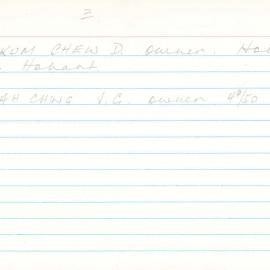 2.
KUM CHEW D. owner. Ho
Hobart
AH CHING V.G. owner 48/50